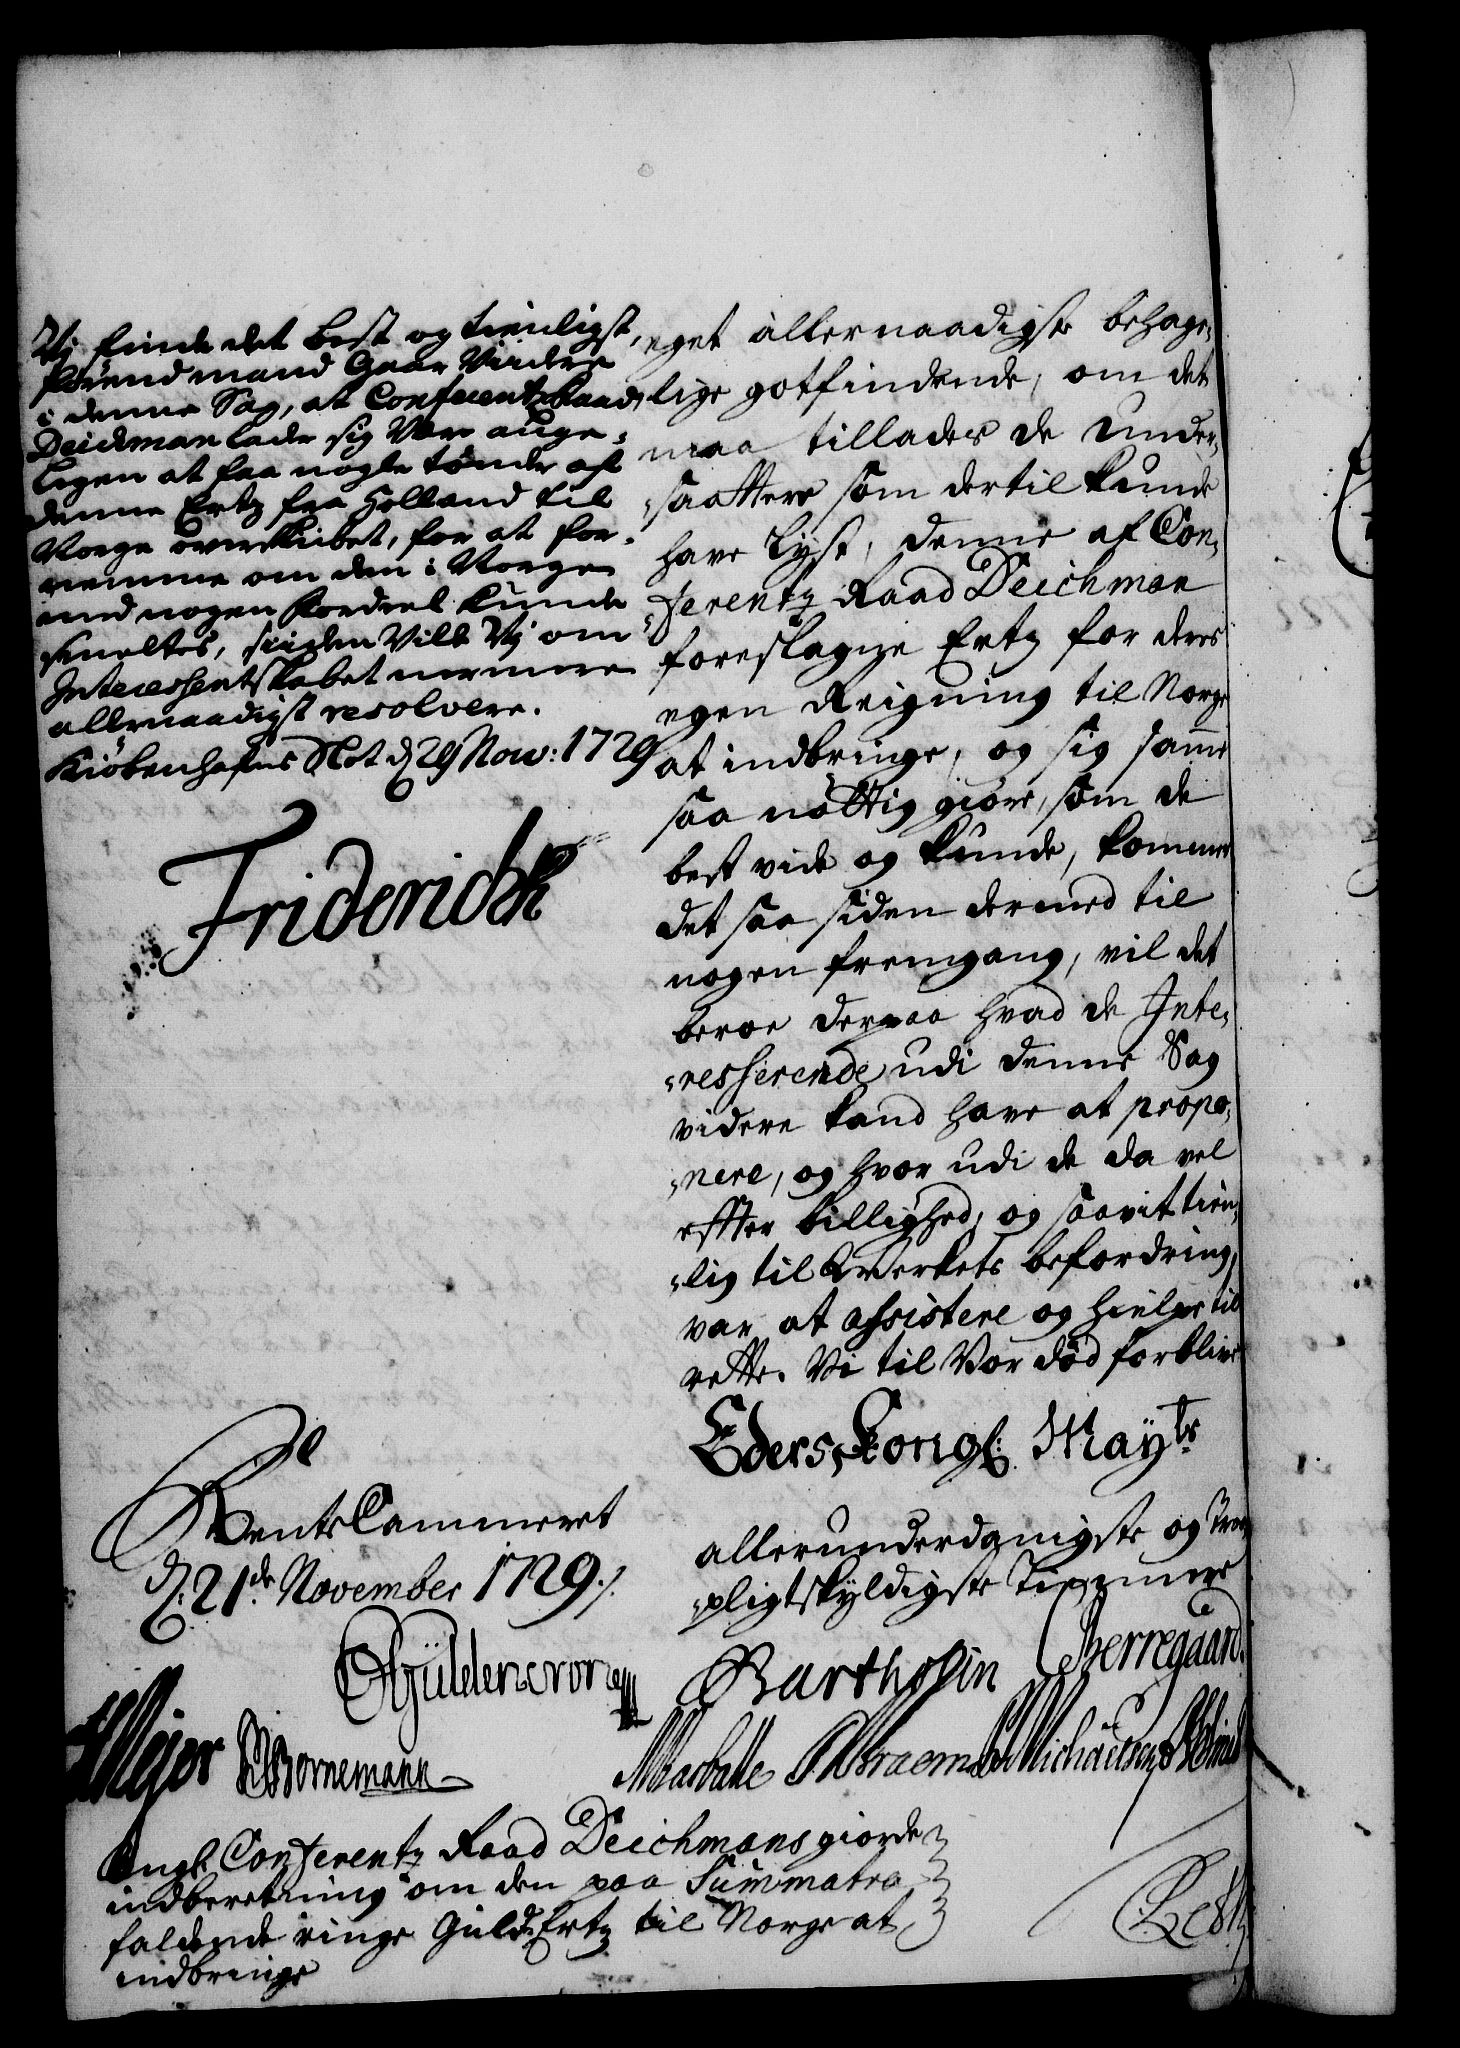 Vj finde det best og tienligst,
förend mand Gaar Viidere
i denne Sag, at ConferentzRaad
Deichman lade sig Være ange-
legen at faa nogle tönder af
denne Ertz fra Holland til
Norge överskibet, for at for-
nemme om den i Norge
med nogen fordeel kunde
smeltes, siiden Ville Vj om
Interessentskabet nermere
allernaadigst resolvere.
Kiöbenhafns Slot d 29 Nov: 1729
Friderich R
RenteCammeret
d: 21de November 1729.
eget allernaadigste behage-
lige gotfindende, om det
maa tillades de under-
saattere som dertil kunde
have lyst, denne af Con-
ferentz Raad Deichman
foreslagne Ertz for deres
egen Reigning til Norge
at indbringe, og sig samme
saa nöttig giöre, som de
best vide og kunde, kommer
det saa siden dermed til
nogen fremgang, vil det
beroe derpaa hvad de Inte-
resserende udi denne Sag
videre kand have at propo-
nere, og hvor udi de da vel
effter billighed, og saavit tien-
lig til Werkets befordring,
var at assistere og hielpe til
rette. Vi til Vor död forblive
Eders Kongl: Mayts
allerunderdanigste og Troe
pligtskyldigste Tienere
Güldencrone Bartholin Berregaard
Mejer Bornemann
Conferentz Raad Deichmans giorde
indberetning om den paa Summatra
faldende ringe Guld-Ertz til Norge at
indbringe